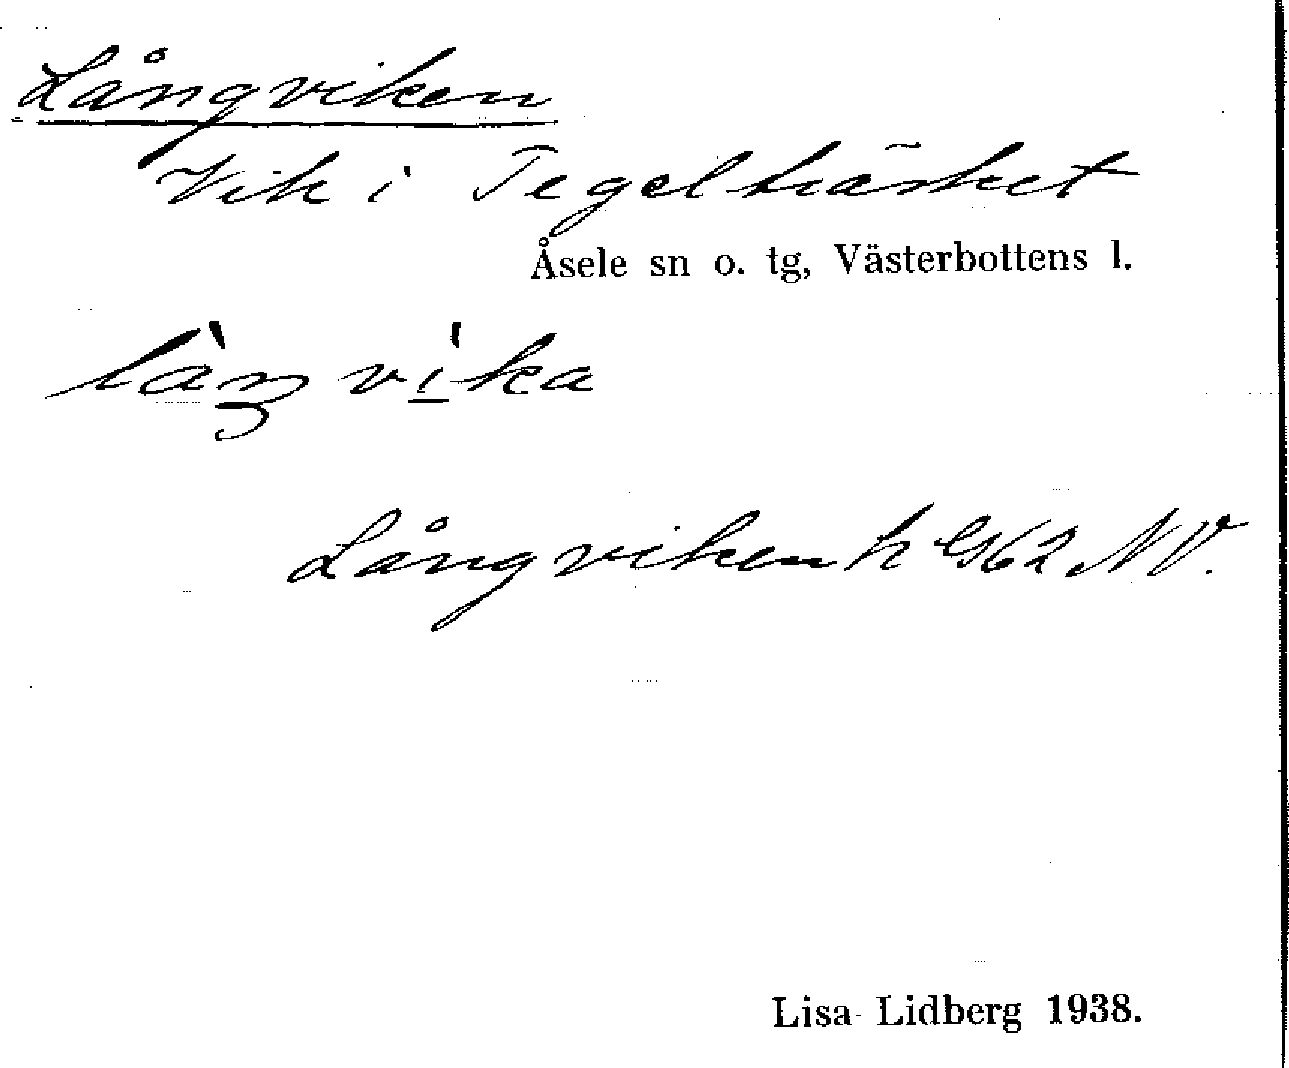 Långviken
Vik i Tegelträsket
Åsele sn o. tg, Västerbottens l.
Långviken k G62 NV.
Lisa Lidberg 1938.